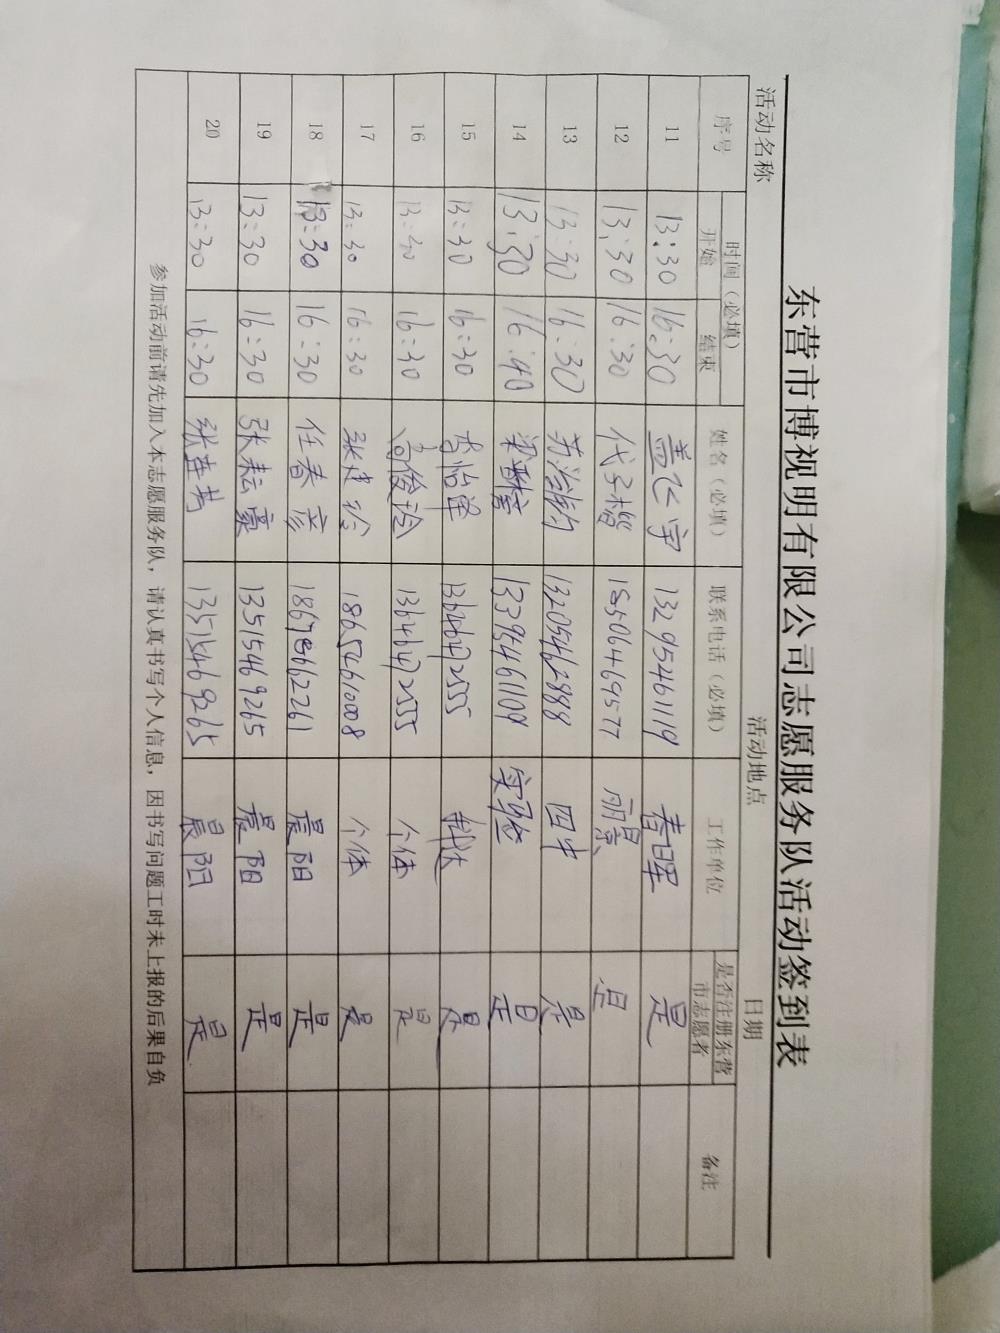 东营市博视明有限公司志愿服务队活动签到表
活动名称 活动地点 日期
序号 时间（必填） 姓名（必填） 联系电话（必填） 工作单位 是否注册东营市志愿者 备注
开始 结束
11 13:30 16:30 盖飞宇 13295461119 春晖 是
12 13:30 16:30 代子楷 15506469577 丽景 是
13 13:30 16:30 13205462888 四中 是
14 13:30 16:40 梁 13395461109 实验 是
15 13:30 16:30 李怡 13646472555 是
16 13:30 16:30 高俊玲 13646472555 个体 是
17 13:30 16:30 张建珍 18654661008 个体 是
18 13:30 16:30 任春彦 18678662261 晨阳 是
19 13:30 16:30 张耘豪 13515469265 晨阳 是
20 13:30 16:30 张芳 13515469265 晨阳 是
参加活动前请先加入本志愿服务队，请认真书写个人信息，因书写问题工时未上报的后果自负